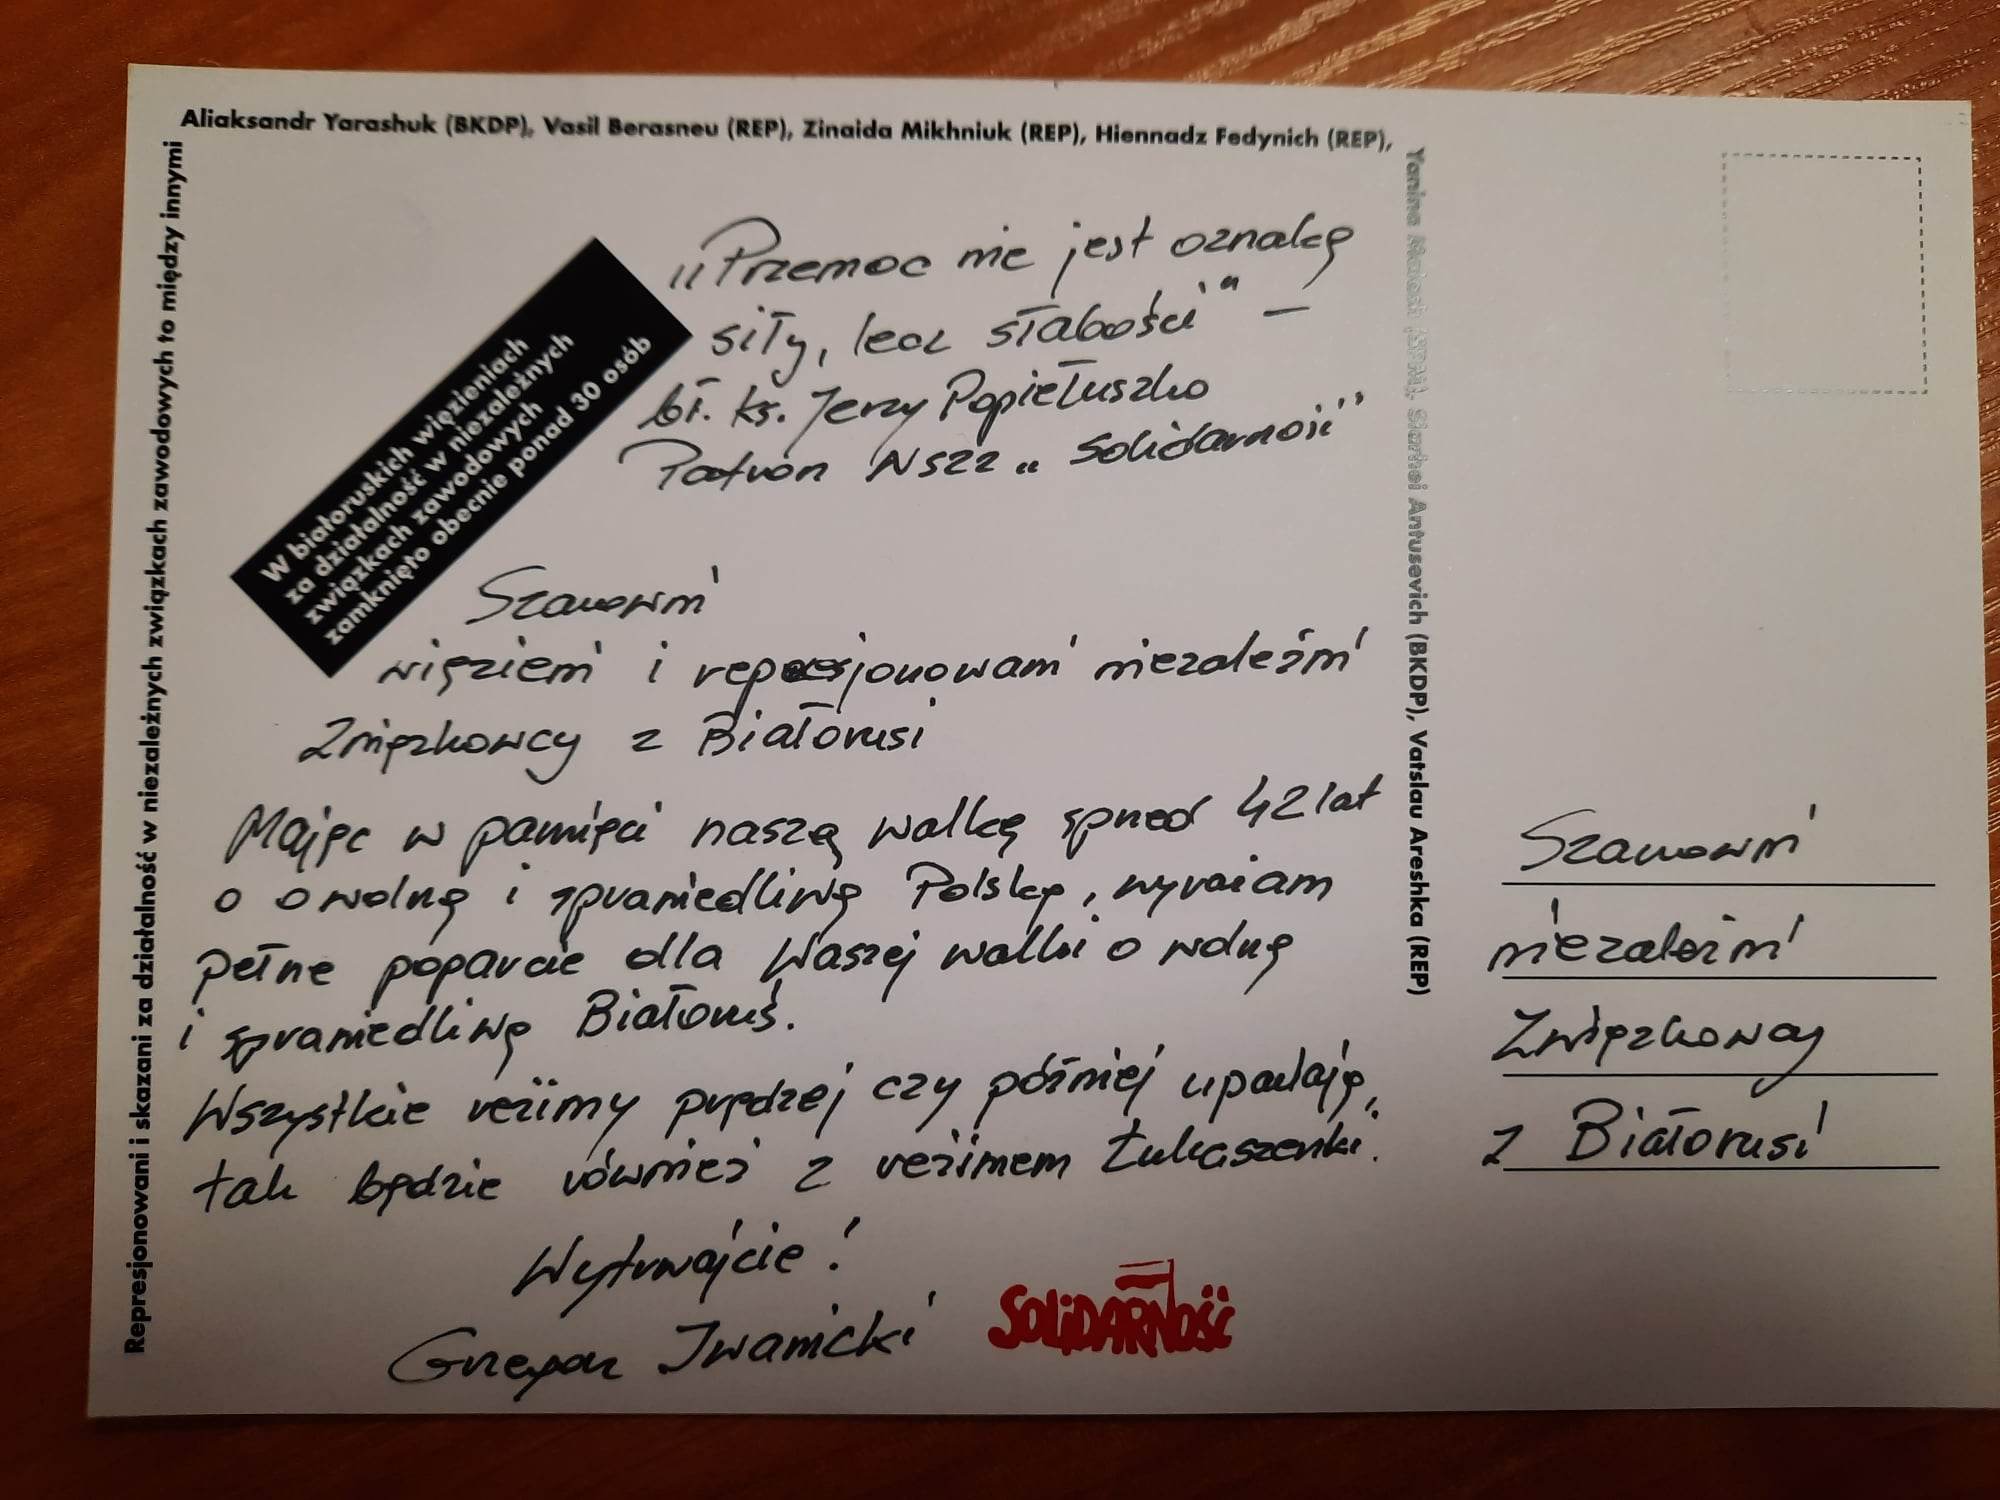 Aliaksandr Yarashuk (BKDP), Vasil Berasneu (REP), Zinaida Mikhniuk (REP), Hiennadz Fedynich (REP),
Yanina Malash (SPM), Siarhei Antusevich (BKDP), Vatslau Areshka (REP)
Represjonowani i skazani za działalność w niezależnych związkach zawodowych to między innymi
W białoruskich więzieniach
za działalność w niezależnych
związkach zawodowych
zamknięto obecnie ponad 30 osób
„Przemoc nie jest oznaką
siły, lecz słabości" –
bł. ks. Jerzy Popiełuszko
Patron NSZZ „Solidarność"
Szanowni
więzieni i represjonowani niezależni
Związkowcy z Białorusi
Mając w pamięci naszą walkę sprzed 42 lat
o o wolną i sprawiedliwą Polskę, wyrażam
pełne poparcie dla Waszej walki o wolną
i sprawiedliwą Białoruś.
Wszystkie reżimy prędzej czy później upadają,
tak będzie również z reżimem Łukaszenki.
Wytrwajcie!
Grzegorz Iwanicki
SOLIDARNOŚĆ
Szanowni
niezależni
Związkowcy
z Białorusi